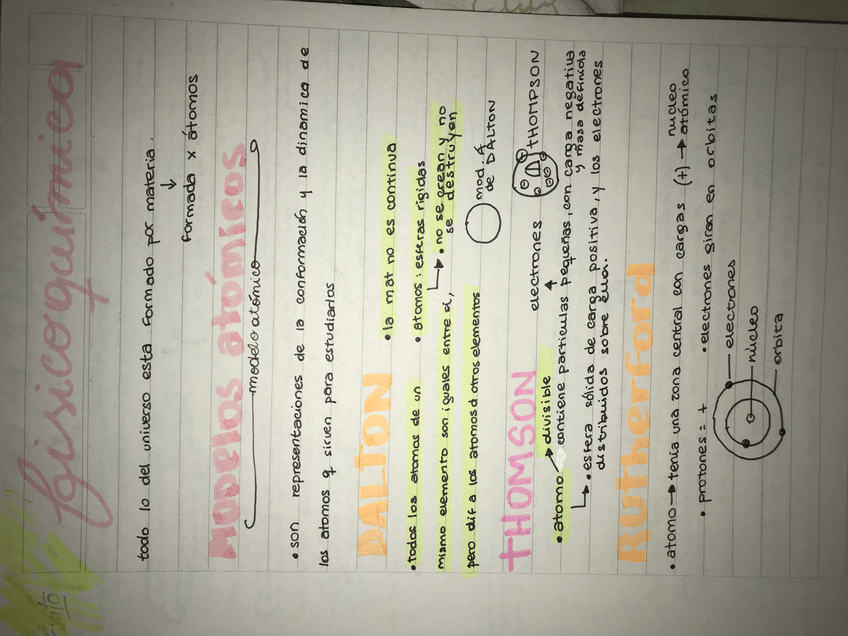 fisicoquímica
todo lo del universo esta formado por materia.
↓
formada x átomos
MODELOS atómicos
modelo atómico
• son representaciones de la conformación y la dinamica de
los atomos q sirven para estudiarlos
DALTON • la mat no es continua
• todos los atomos de un • atomos: esferas rigidas
mismo elemento son iguales entre si, → • no se crean y no
se destruyen
pero dif a los atomos d otros elementos
mod. A
de DALTON
THOMSON electrones THOMPSON
• atomo → divisible
contiene particulas pequeñas, con carga negativa
y masa definida
→ • esfera sólida de carga positiva, y los electrones
distribuidos sobre ella.
RUTHERFORD
• atomo → tenía una zona central con cargas (+) → nucleo
atómico
• protones = + • electrones giran en orbitas
electrones
núcleo
orbita